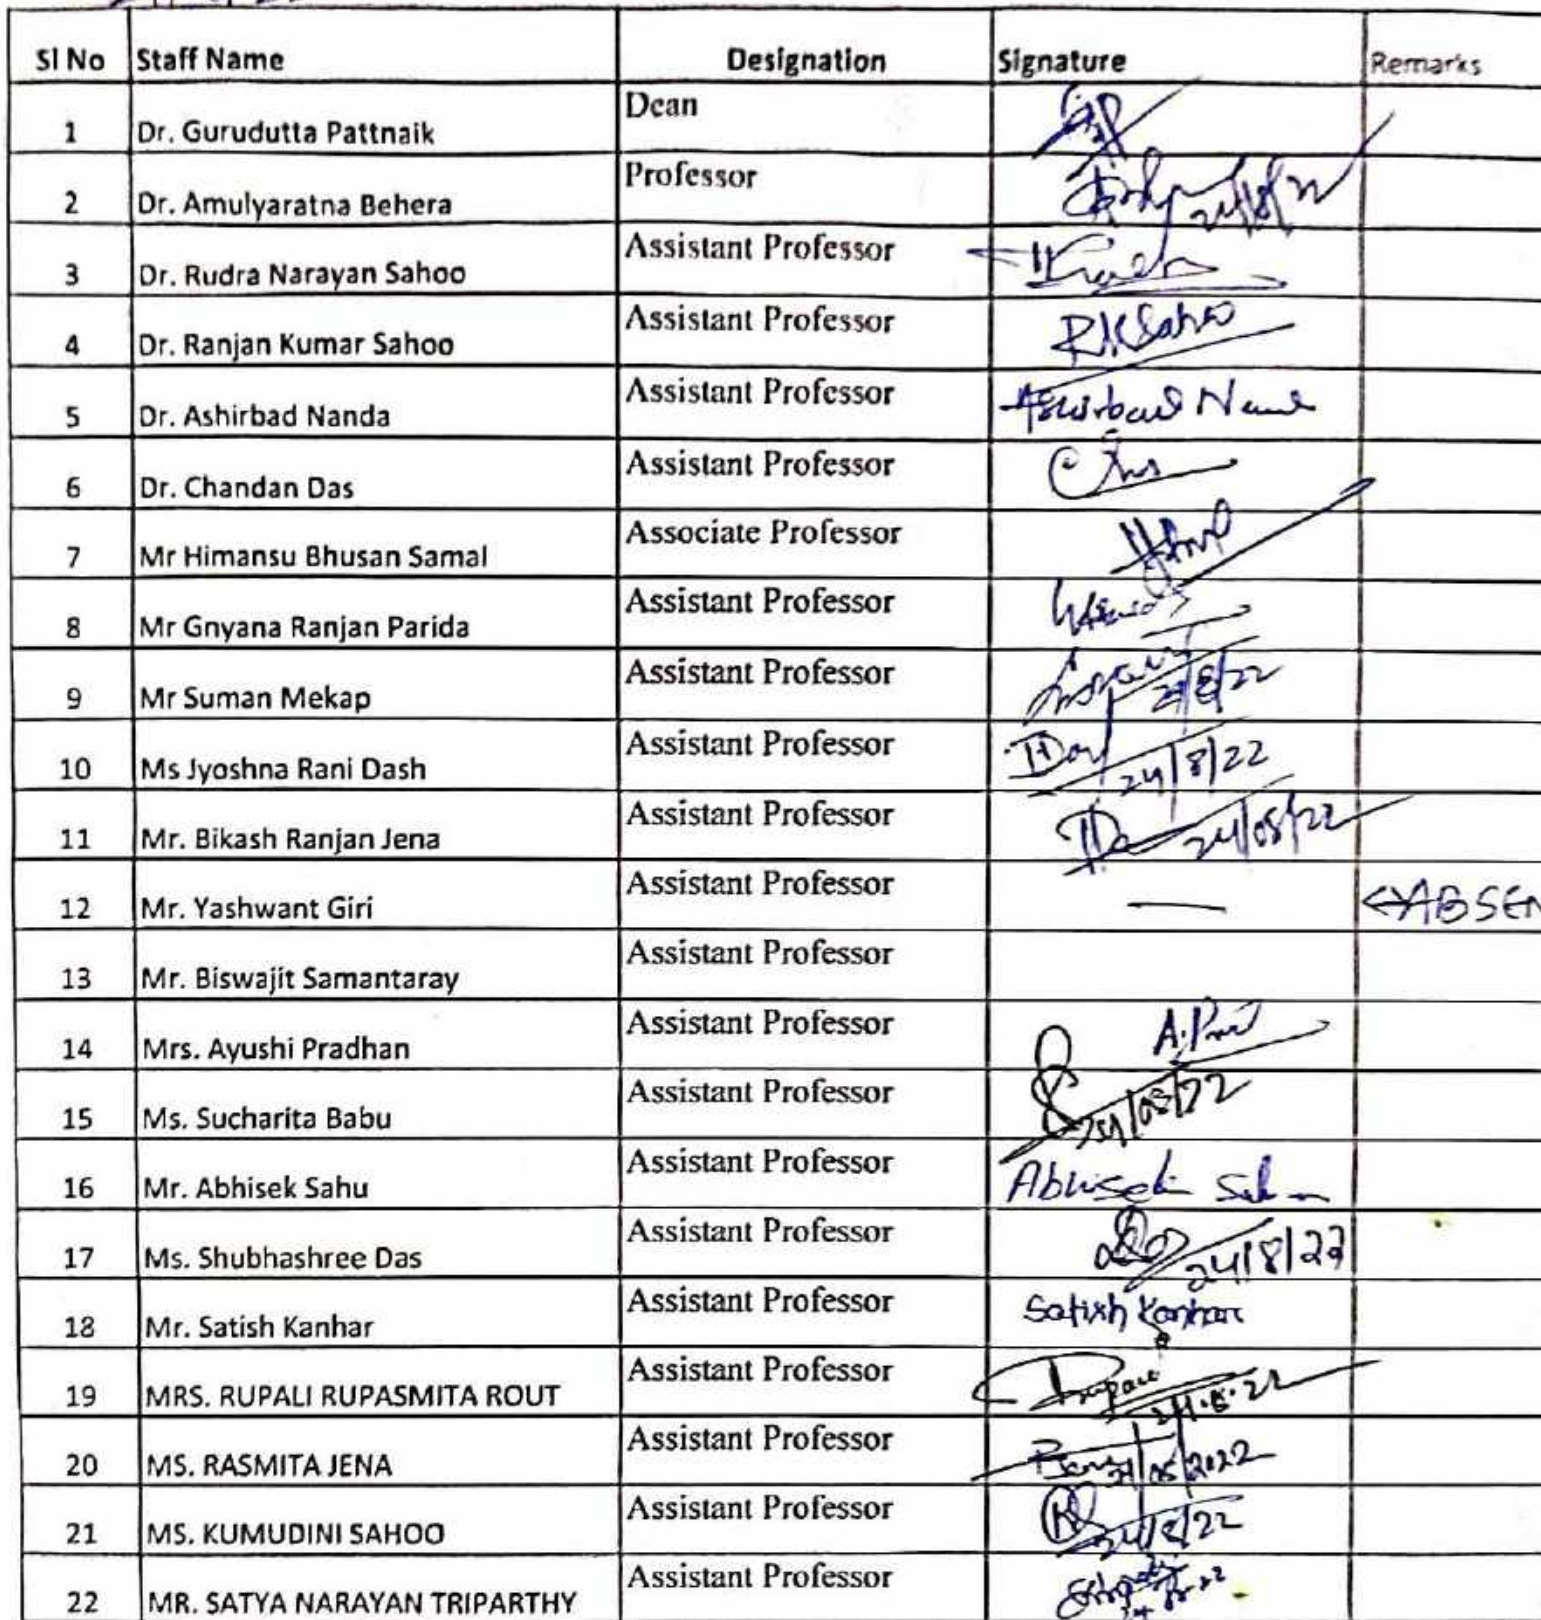 Sl No Staff Name Designation Signature Remarks
1 Dr. Gurudutta Pattnaik Dean
2 Dr. Amulyaratna Behera Professor 24/8/22
3 Dr. Rudra Narayan Sahoo Assistant Professor
4 Dr. Ranjan Kumar Sahoo Assistant Professor RKSahoo
5 Dr. Ashirbad Nanda Assistant Professor Ashirbad Nanda
6 Dr. Chandan Das Assistant Professor
7 Mr Himansu Bhusan Samal Associate Professor
8 Mr Gnyana Ranjan Parida Assistant Professor
9 Mr Suman Mekap Assistant Professor
10 Ms Jyoshna Rani Dash Assistant Professor 24/8/22
11 Mr. Bikash Ranjan Jena Assistant Professor 24/08/22
12 Mr. Yashwant Giri Assistant Professor — ABSEN
13 Mr. Biswajit Samantaray Assistant Professor
14 Mrs. Ayushi Pradhan Assistant Professor
15 Ms. Sucharita Babu Assistant Professor
16 Mr. Abhisek Sahu Assistant Professor Abhisek
17 Ms. Shubhashree Das Assistant Professor 24/8/22
18 Mr. Satish Kanhar Assistant Professor Satish Kanhar
19 MRS. RUPALI RUPASMITA ROUT Assistant Professor
20 MS. RASMITA JENA Assistant Professor
21 MS. KUMUDINI SAHOO Assistant Professor 24/8/22
22 MR. SATYA NARAYAN TRIPARTHY Assistant Professor